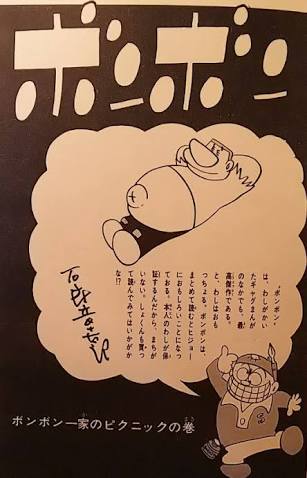 ボンボン
"ボンボン"
は、わしがかい
たギャグまんが
のなかでも、最
高傑作である。
と、わしはおも
っちょる。ボンボンは、
まとめて読むとヒジョー
におもしろいことになっ
ておる。本人のわしが保
証するんだから、まちが
いない。しょくんも買っ
て読んでみてはいかがか
な!?
石森章太郎
ボンボン一家のピクニックの巻